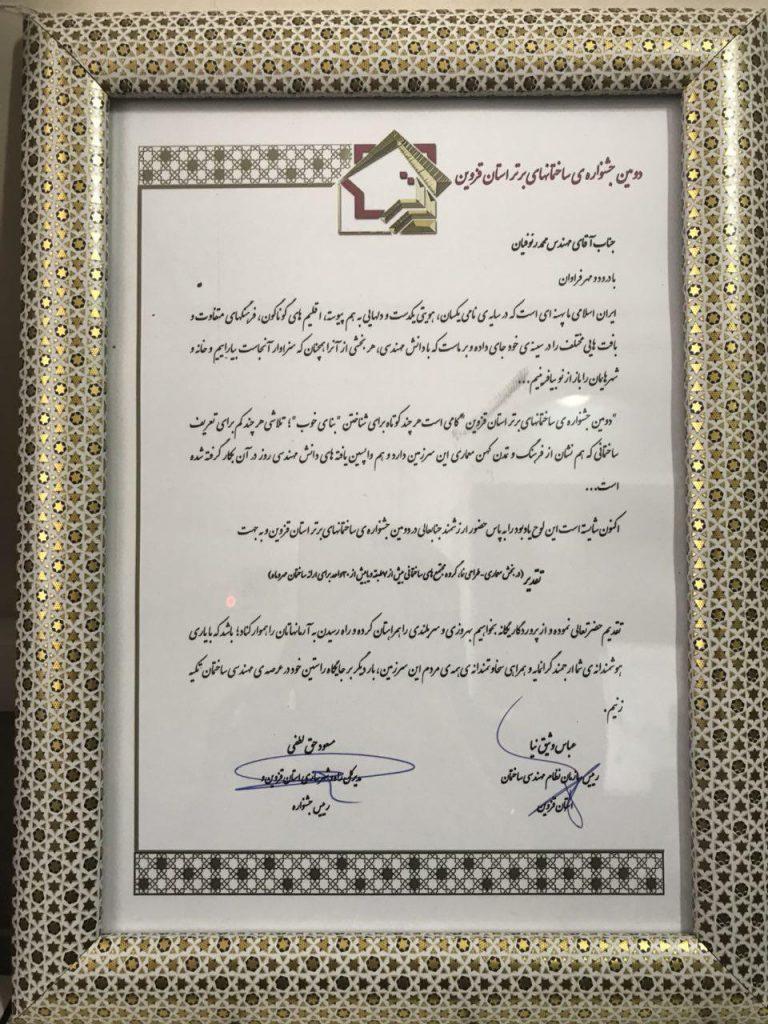 دومین جشنواره ی ساختمانهای برتر استان قزوین
جناب آقای مهندس محمد رئوفیان
با درود و مهر فراوان
ایران اسلامی ما پهنه ای است که در سایه ی نامی یکسان، هویتی یکدست و دلهایی به هم پیوسته، اقلیم های گوناگون، فرهنگهای متفاوت و
بافت هایی مختلف را در سینه ی خود جای داده و بر ماست که با دانش مهندسی، هر بخشی از آنرا همچنان که سزاوار آنجاست بیاراییم و خانه و
شهرهایمان را باز از نو بیافرینیم...
"دومین جشنواره ی ساختمانهای برتر استان قزوین" گامی است هر چند کوتاه برای شناختن "بنای خوب"؛ تلاشی هر چند کم برای تعریف
ساختمانی که هم نشان از فرهنگ و تمدن کهن معماری این سرزمین دارد و هم واپسین یافته های دانش مهندسی روز در آن بکار گرفته شده
است...
اکنون شایسته است این لوح یادبود را به پاس حضور ارزشمند جنابعالی در دومین جشنواره ی ساختمانهای برتر استان قزوین و به جهت
تقدیر (در بخش معماری - طراحی نما، گروه مجتمع های ساختمانی بیش از ۷ طبقه و یا بیش از ۳۰ واحد برای ارائه ساختمان مهرداد)
تقدیم حضرتعالی نموده و از پروردگار یگانه بخواهیم بهروزی و سربلندی را همراهتان کرده و راه رسیدن به آرمانهاتان را هموار کناد؛ باشد که با یاری
هوشمندانه ی شما ارجمند گرانمایه و همراهی سخاوتمندانه ی همه ی مردم این سرزمین، بار دیگر بر جایگاه راستین خود در عرصه ی مهندسی ساختمان تکیه
زنیم.
عباس وثیق نیا
رییس سازمان نظام مهندسی ساختمان
استان قزوین
مسعود حق لطفی
مدیر کل راه و شهرسازی استان قزوین و
رییس جشنواره